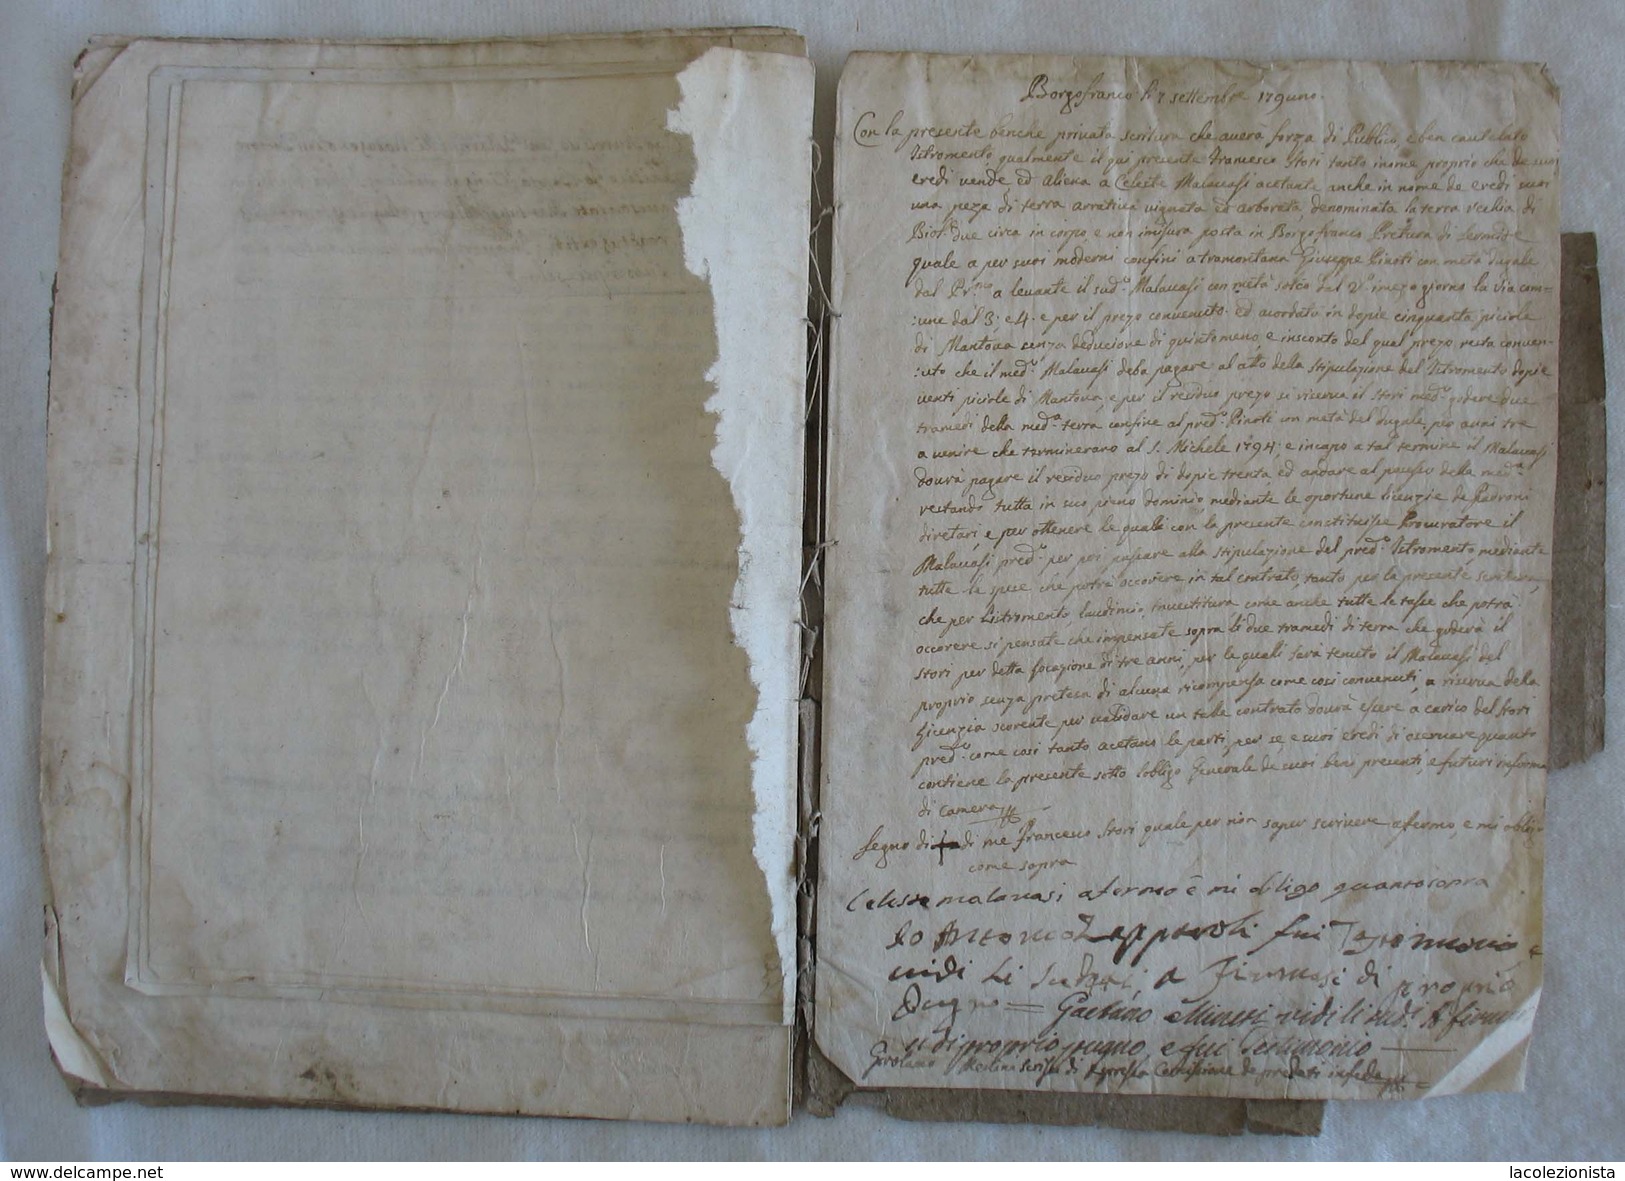 Borgofranco li 7 settembre 179uno.
Con la presente benche privata scritura che averà forza di Publico, e ben cautelato
Istromento, qualmente il qui presente Francesco Stori tanto inome proprio che de suoi
eredi vende ed aliena a Celeste Malavasi acetante anche in nome de eredi suoi
una peza di terra arrativa vignata ed arborata, denominata la terra vechia di
Biol.e due circa in corpo, e non imisura posta in Borgofranco Pretura di Sermide
quale a per suoi moderni confini a tramontana Giuseppe Pinoti con metà dugale
dal Pr.mo a levante il sud.o Malavasi con metà solco dal 2.o imezo giorno la via com=
:une dal 3; e 4. e per il prezo convenuto ed acordato in dopie cinquanta piciole
di Mantova senza deducione di quintomeno, e insconto del qual prezo resta conven=
:uto che il med.o Malavasi deba pagare al atto della stipulazione del Istromento dopie
venti picicle di Mantova, e per il residuo prezo si riserva il Stori med.o godere due
tramedi della med.a terra confine al pred.o Pinoti con metà del dugale, per anni tre
a venire che termineraro al S. Michele 1794; e incapo a tal termine il Malavasi
dovrà pagare il residuo prezo di dopie trenta ed andare al possesso della med.a
restando tutta in suo pieno dominio, mediante le oportune licenzie de Padroni
diretari, e per ottenere le quali con la presente constituisse Procuratore il
Malavasi pred.o per poi passare alla stipulazione del pred.o Istromento, mediante
tutte le spese che potrà occorere in tal contrato, tanto per la presente scritura,
che per Listromento, laudimio, investitura come anche tutte le tasse che potrà
occorere si pensate che impensate sopra li due tramedi di terra che goderà il
Stori per detta locazione di tre anni, per le quali sarà tenuto il Malavasi del
proprio senza pretesa di alcuna ricompensa come così convenuti, a riserva della
licenzia ocorente per validare un tale contrato dovrà essere a carico del Stori
pred.o come così tanto acetano le parti per se, e suoi eredi di osservare quanto
contiene la presente sotto lobligo Generale de suoi beni presenti, e futuri informa
di Camera
Segno di + di me Francesco Stori quale per non saper scrivere afermo, e mi obligo
come sopra
Celeste malavasi afermo e mi obligo quanto sopra
Io Antonio Zapparoli fui Testimonio e
vidi li sudeti a Firmasi di proprio
Pugno = Gaetano Minesi vidi li sud.i A firmar
si di proprio pugno, e fui Testimonio
Girolamo scrissi di espressa Comissione de predeti infede
www.delcampe.net
lacolezionista